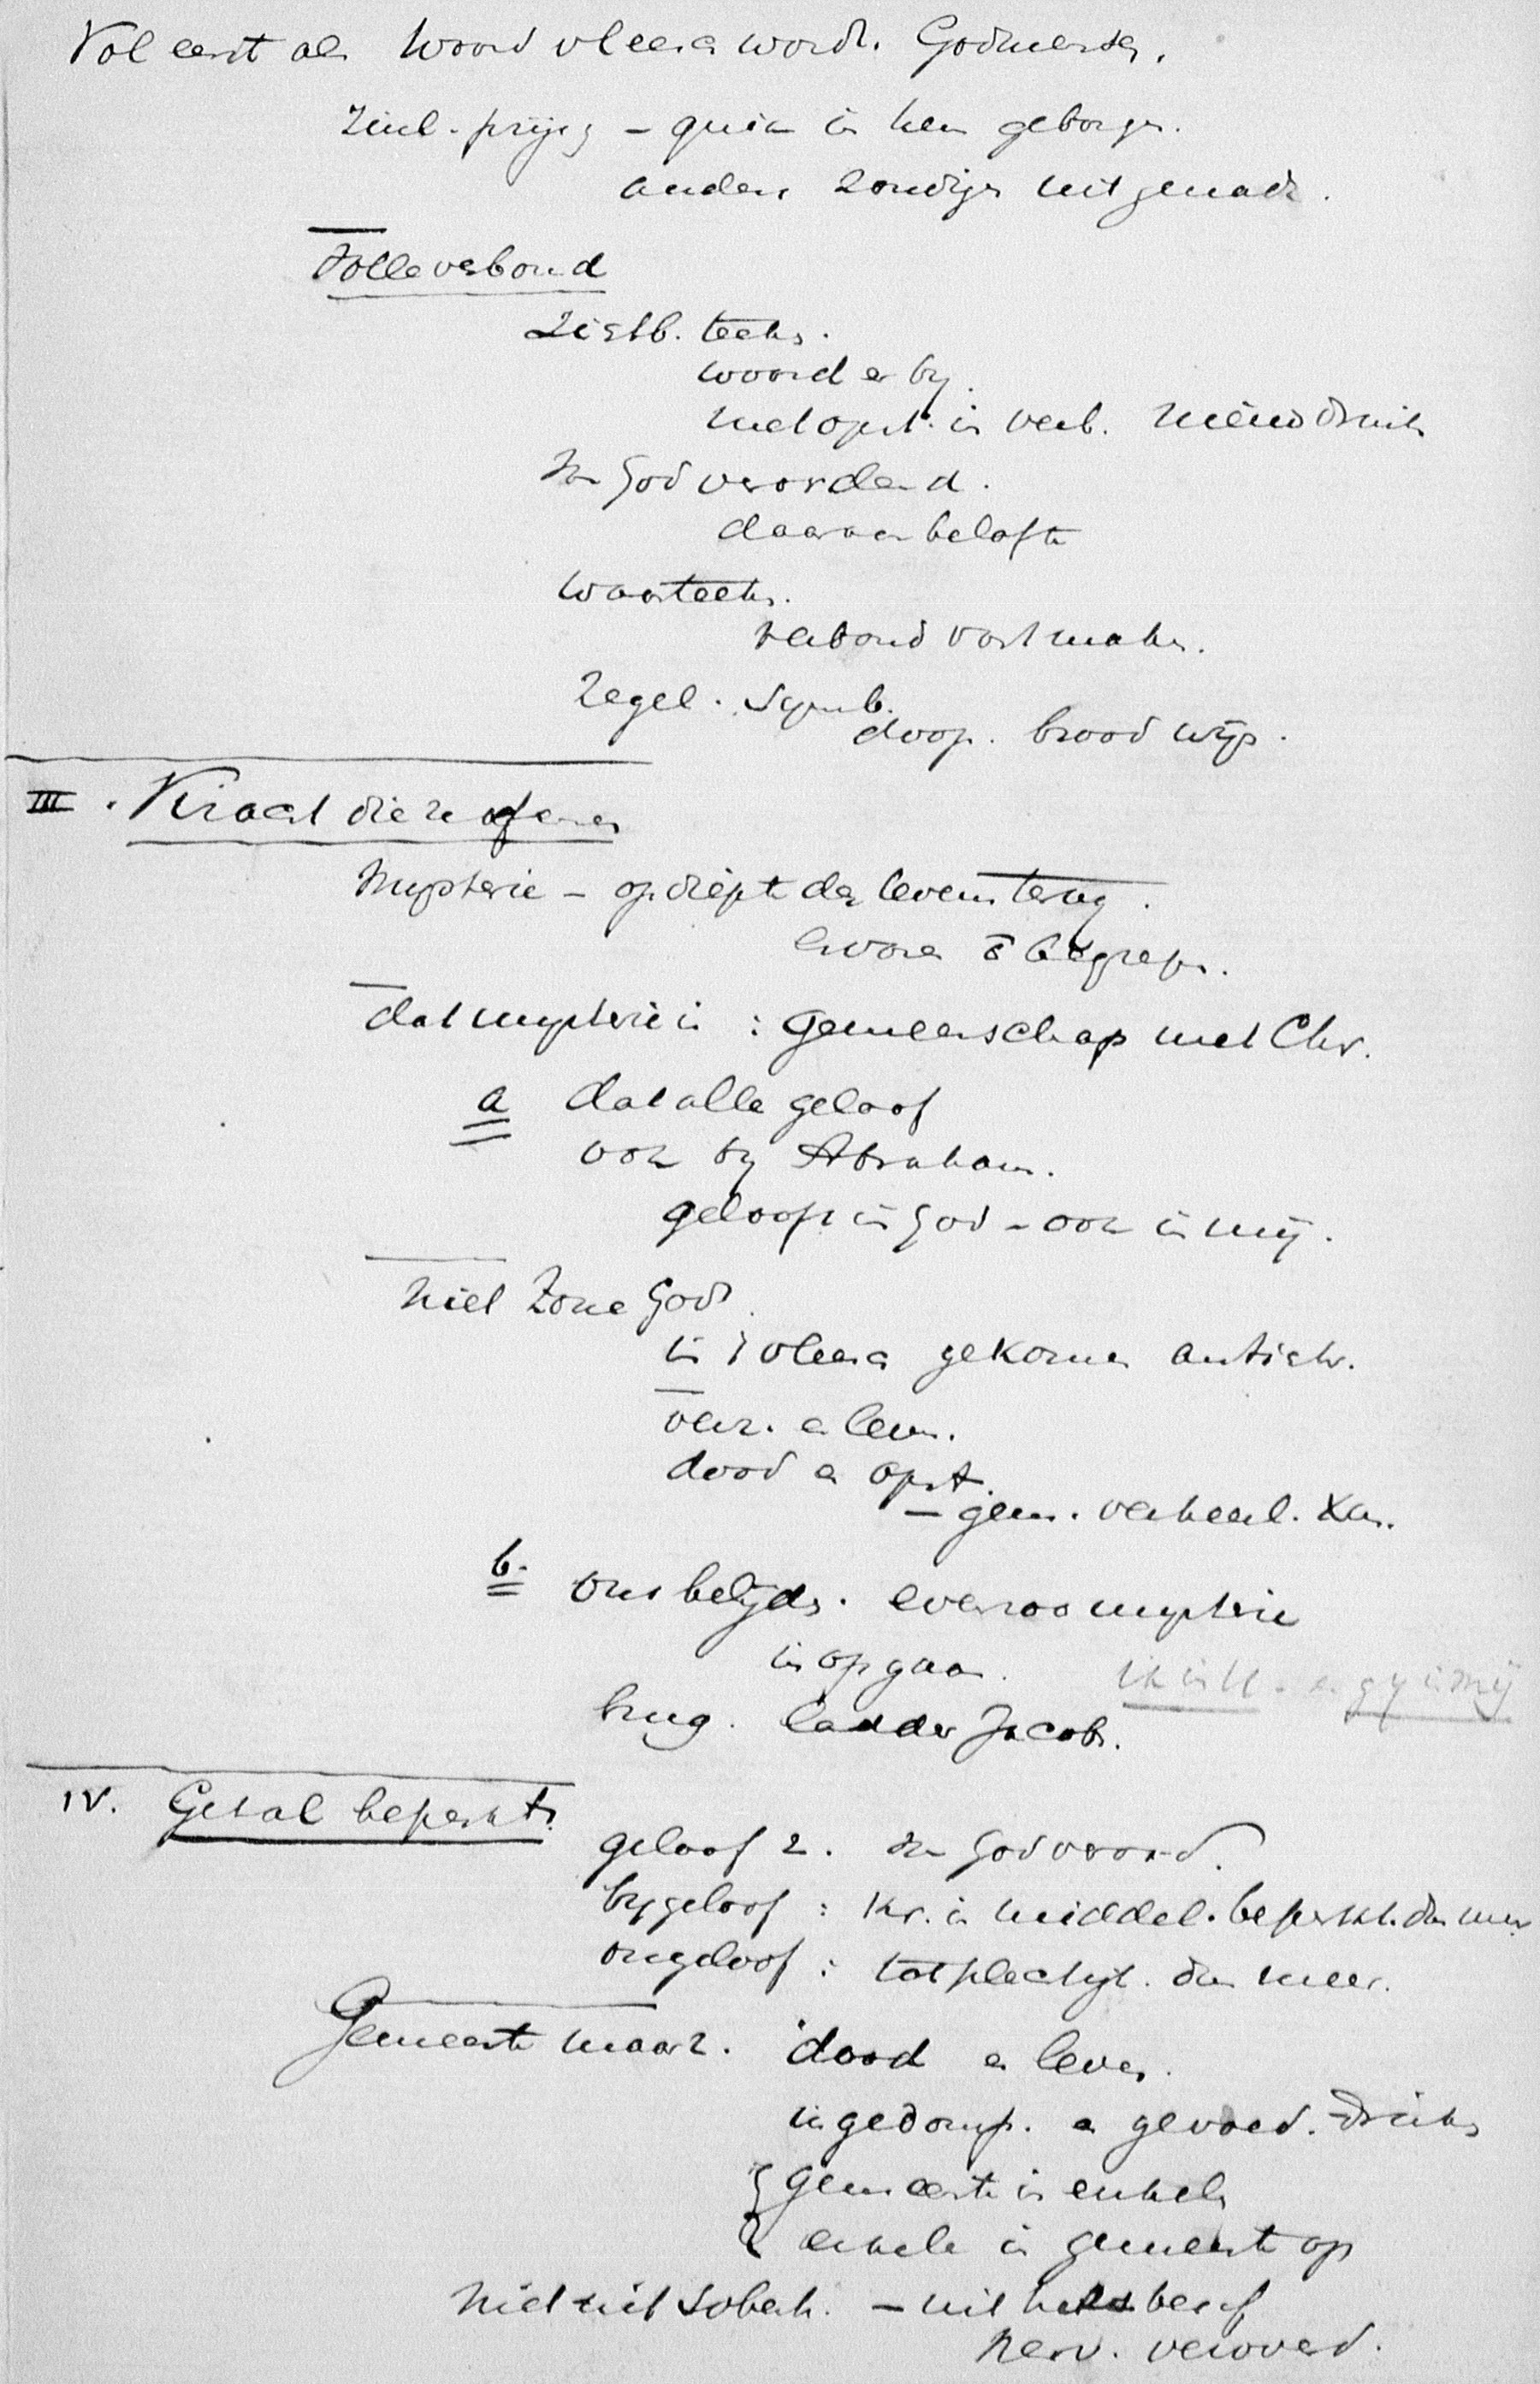 Vol eerst als Woord vleesch word. Godmensch.
Zinl. prijs – gratie in hem geborgen.
anders zondige uit genade.
Volle verbond
Zichtb. teeken.
woord er bij.
met opst. in verb. nieuw
Door God verordend.
daaraan belofte
Waarteeken.
verbond vast maken.
Zegel. Symb.
doop. brood wijn.
III. Kracht die ze oefenen
Mysterie – op diepte des levens terug.
begrepen.
dat mysterie is : gemeenschap met Chr.
a dat alle geloof
ook bij Abraham.
gelooft in God – ook in mij.
Niet Zone Gods.
in 't vleesch gekomen antichr.
verz. en leven.
dood en opst.
– gem. verheerl. Xus.
b. Ons belijden. evenzoo mysterie
in op gaan. ik in U. en gij in mij
brug. ladder Jacobs.
IV. Getal beperkt.
geloof 2. Door God verord.
bijgeloof : Kr. in middel. beperkt. dan meer
ongeloof : tot plechtigh. dan meer.
Gemeente maar 2. dood en leven.
ingedomp. en gevoed.
gemeente in enkele
enkele in gemeente op
Niet uit – uit
Herv. veroverd.